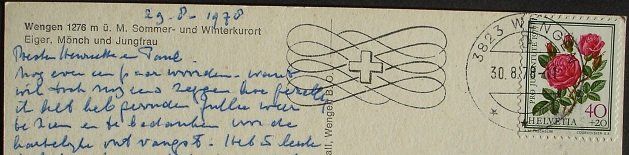 29-8-1978
Wengen 1276 m ü. M. Sommer- und Winterkurort
Eiger, Mönch und Jungfrau
Beste Henriette en Paul.
Nog even een paar woorden - want
wil toch nog eens zeggen hoe gezellig
ik het heb gevonden jullie weer
te zien en te bedanken voor de
hartelijke ontvangst. Heb 5 leuke
3823 WENGEN
30.8.78
HELVETIA
40
+20
Wengen B.O.